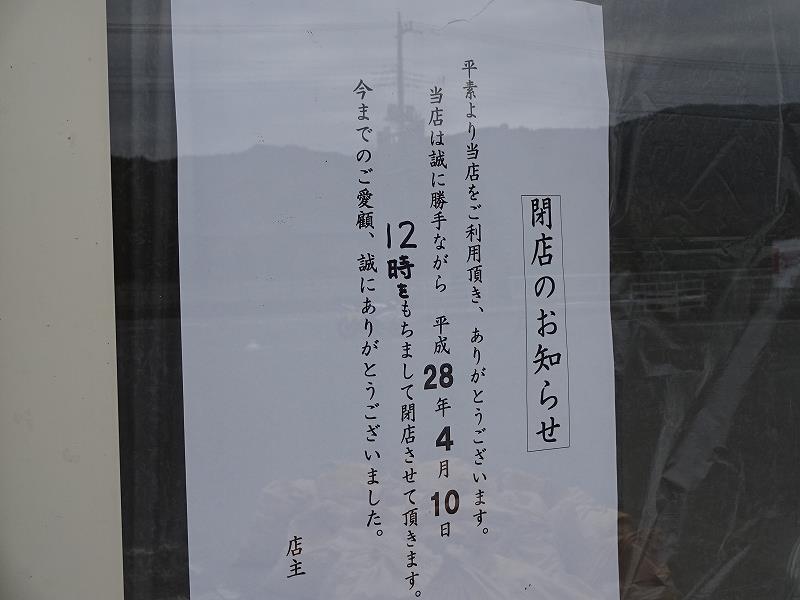 閉店のお知らせ
平素より当店をご利用頂き、ありがとうございます。
当店は誠に勝手ながら 平成28年4月10日
12時をもちまして閉店させて頂きます。
今までのご愛顧、誠にありがとうございました。
店主